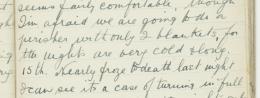 seems fairly comfortable, though
I'm afraid we are going to do a
perisher with only 2 blankets, for
the nights are very cold along.
15th. Nearly froze to death last night
I can see its a case of turning in full